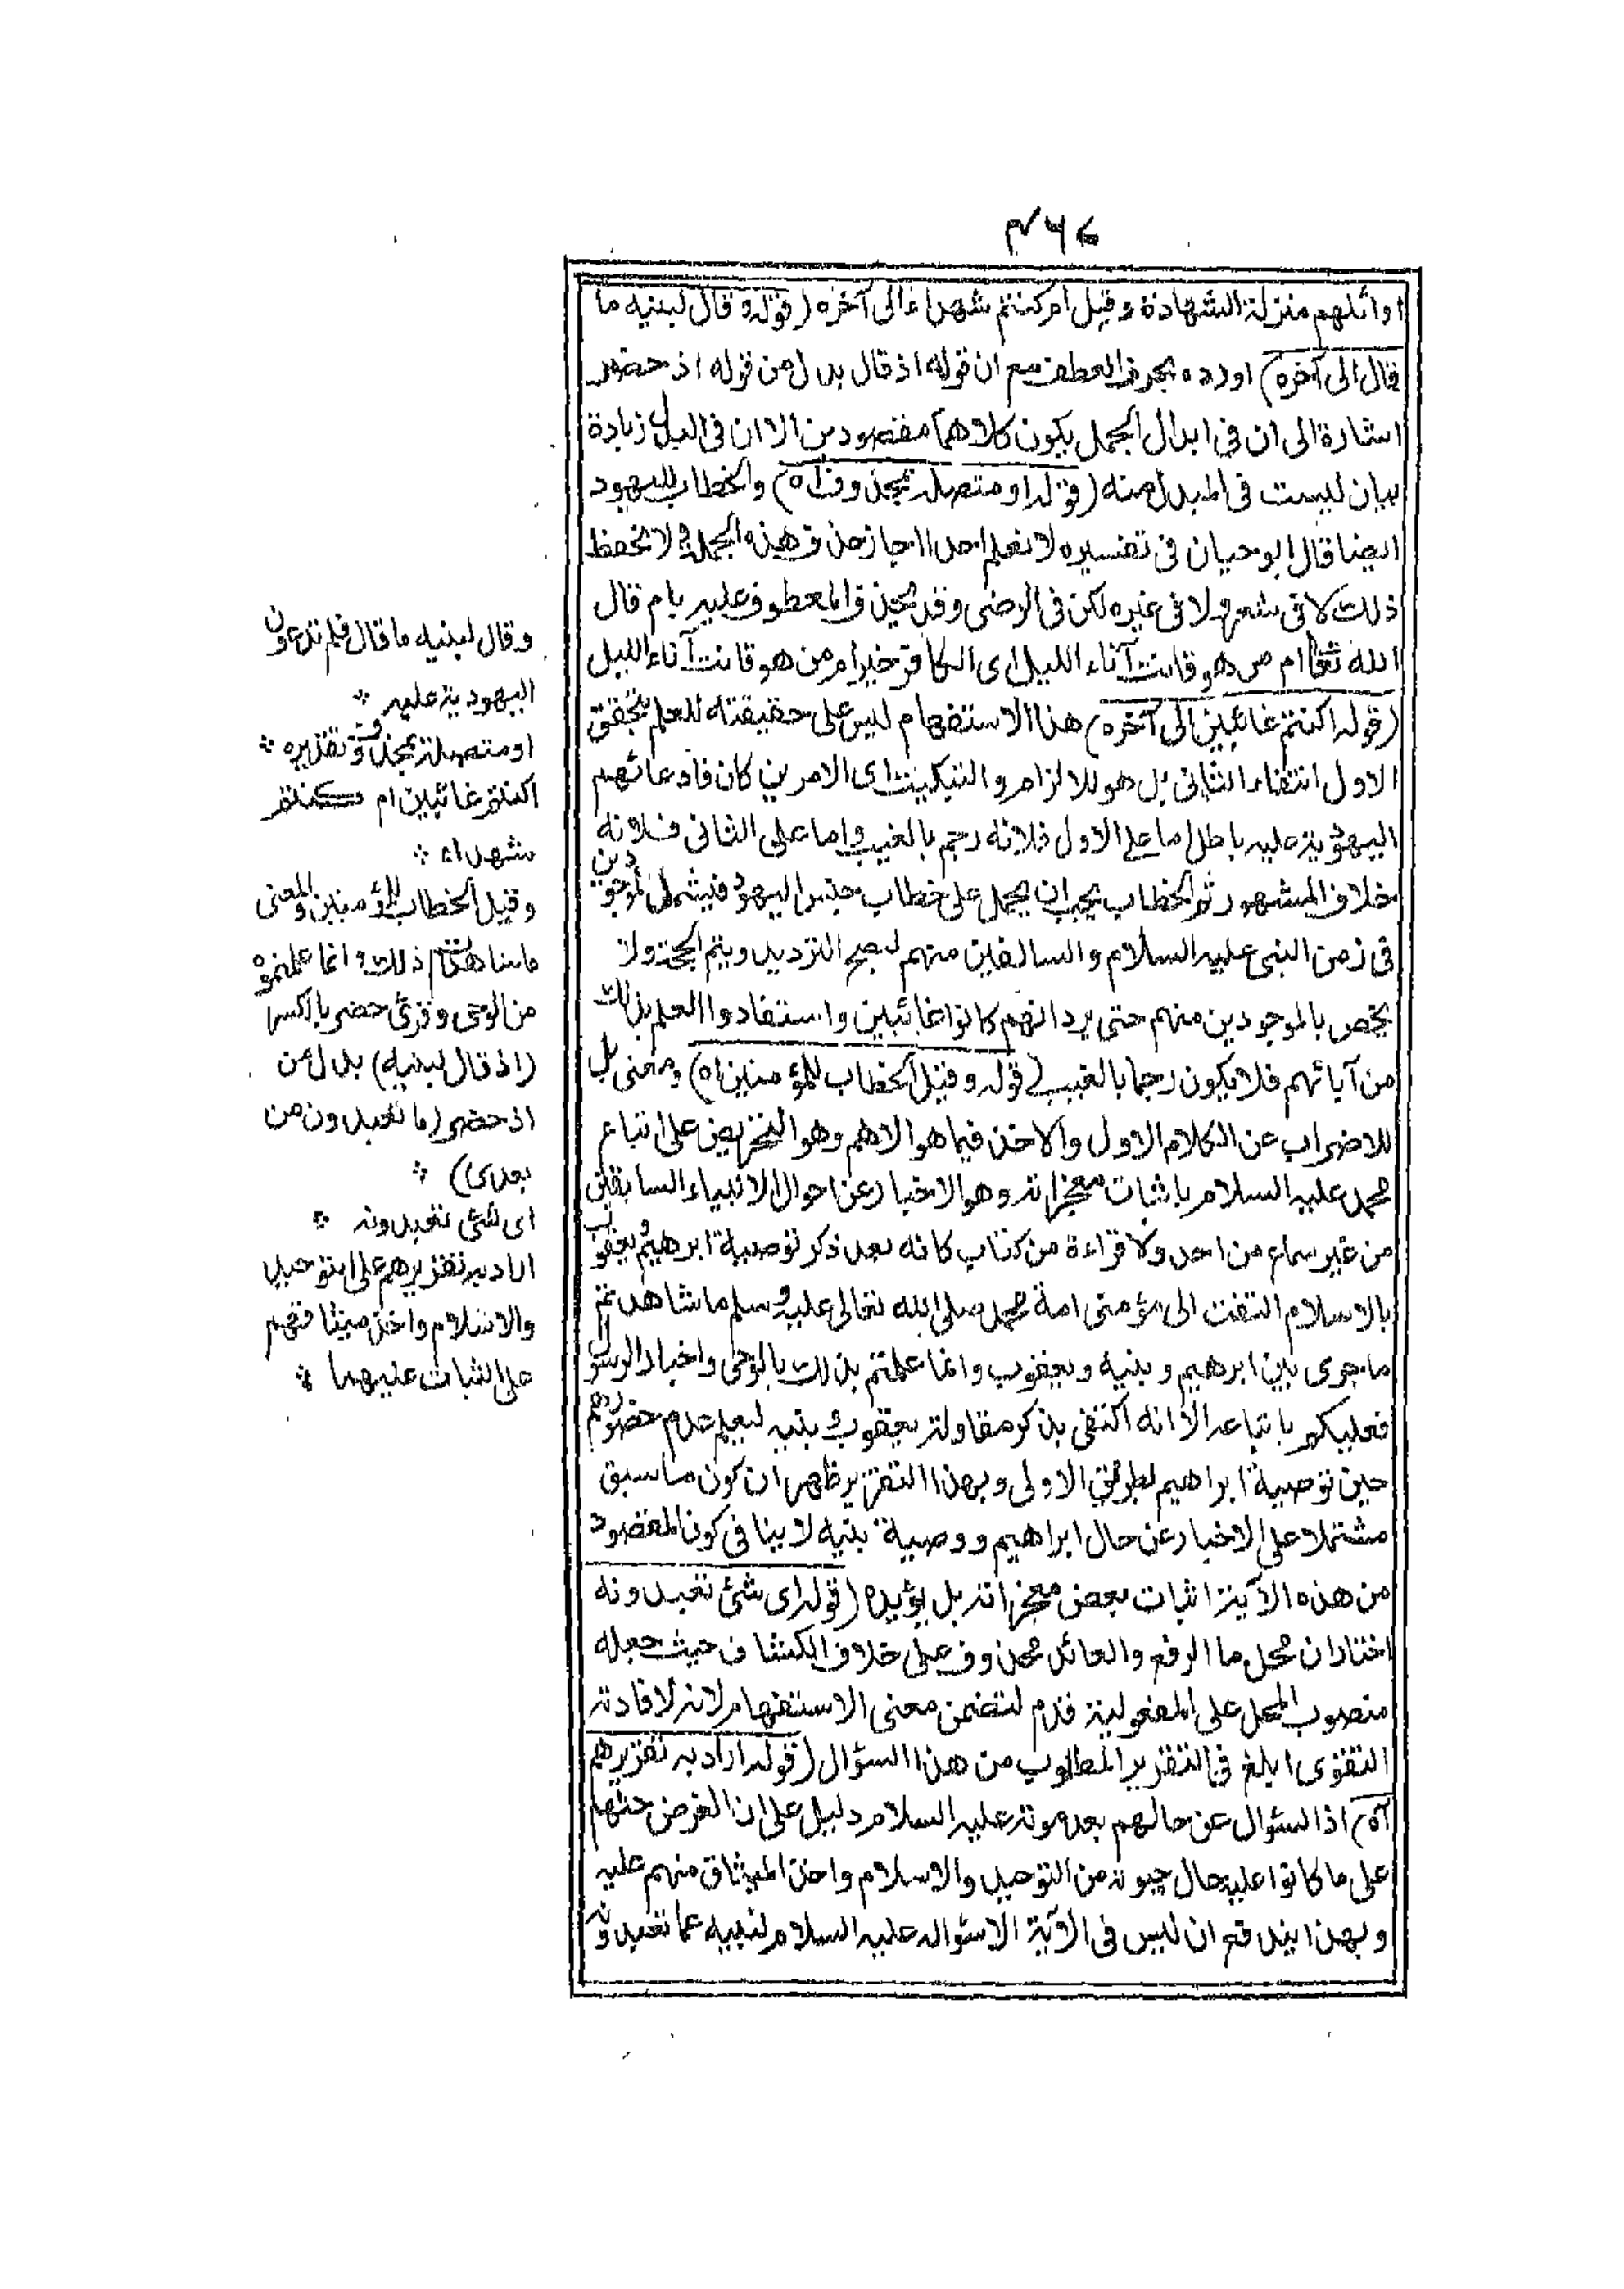 ٤٦٧
اوائلهم منزلة الشهادة وقيل ام كنتم شهداء الى آخره (قوله وقال لبنيه ما
قال الى آخره) اورده بحرف العطف مع ان قوله اذ قال بدل من قوله اذ حضر
اشارة الى ان فى ابدال الجمل يكون كلاهما مقصودين الا ان فى البدل زيادة
بيان ليست فى المبدل منه (قوله او متصلة بمحذوف اه) والخطاب لليهود
ايضا قال ابو حيان فى تفسيره لا نعلم احدا اجاز حذف هذه الجملة ولا يحفظ
ذلك لا فى شعر ولا فى غيره لكن فى الرضى وقد يحذف المعطوف عليه بام قال
الله تعا ام من هو قانت آناء الليل اى الكافر خير ام من هو قانت آناء الليل
(قوله اكنتم غائبين الى آخره) هذا الاستفهام ليس على حقيقته للعلم بتحقق
الاول انتفاء الثانى بل هو للالزام والتبكيت اى الامرين كان فادعائهم
اليهودية عليه باطل اما على الاول فلانه رجم بالغيب واما على الثانى فلانه
خلاف المشهور ثم الخطاب يجب ان يحمل على خطاب جنس اليهود فيشمل الموجودين
فى زمن النبى عليه السلام والسالفين منهم ليصح الترديد ويتم الحجة ولا
يخص بالموجودين منهم حتى يرد انهم كانوا غائبين واستفادوا العلم بذلك
من آبائهم فلا يكون رجما بالغيب (قوله وقيل الخطاب للمؤمنين اه) ومعنى بل
للاضراب عن الكلام الاول والاخذ فيما هو الاهم وهو التحريض على اتباع
محمد عليه السلام باثبات معجزاته وهو الاخبار عن احوال الانبياء السابقين
من غير سماع من احد ولا قراءة من كتاب كانه بعد ذكر توصية ابرهيم ويعقوب
بالاسلام التفت الى مؤمنى امة محمد صلى الله تعالى عليه وسلم ما شاهدتم
ما جرى بين ابرهيم وبنيه ويعقوب وانما علمتم بذلك بالوحى واخبار الرسول
فعليكم باتباعه الا انه اكتفى بذكر مقاولة يعقوب وبنيه ليعلم عدم حضورهم
حين توصية ابراهيم بطريق الاولى وبهذا التقرير ظهر ان كون ما سبق
مشتملا على الاخبار عن حال ابراهيم ووصية بنيه لا ينافى كون المقصود
من هذه الآية اثبات بعض معجزاته بل يؤيده (قوله اى شئ تعبدونه
اختار ان محل ما الرفع والعائد محذوف على خلاف الكشاف حيث جعله
منصوب المحل على المفعولية قدم لتضمن معنى الاستفهام لانه لافادته
التقوى ابلغ فى التقرير المطلوب من هذا السؤال (قوله اراد به تقريرهم
آه) اذ السؤال عن حالهم بعد موته عليه السلام دليل على ان الغرض حثهم
على ما كانوا عليه حال حيوته من التوحيد والاسلام واخذ الميثاق منهم عليه
وبهذا يندفع ان ليس فى الآية الا سؤاله عليه السلام لبنيه عما تعبدونه
وقال لبنيه ما قال فلم تدعون
اليهودية عليه ⁘
او متصلة بمحذوف تقديره ⁘
اكنتم غائبين ام كنتم
شهداء ⁘
وقيل الخطاب للمؤمنين والمعنى
ما شاهدتم ذلك وانما علمتموه
من الوحى وقرئ حضر بالكسر
(اذ قال لبنيه) بدل من
اذ حضر (ما تعبدون من
بعدى) ⁘
اى شئ تعبدونه ⁘
اراد به تقريرهم على التوحيد
والاسلام واخذ ميثاقهم
على الثبات عليهما ⁘